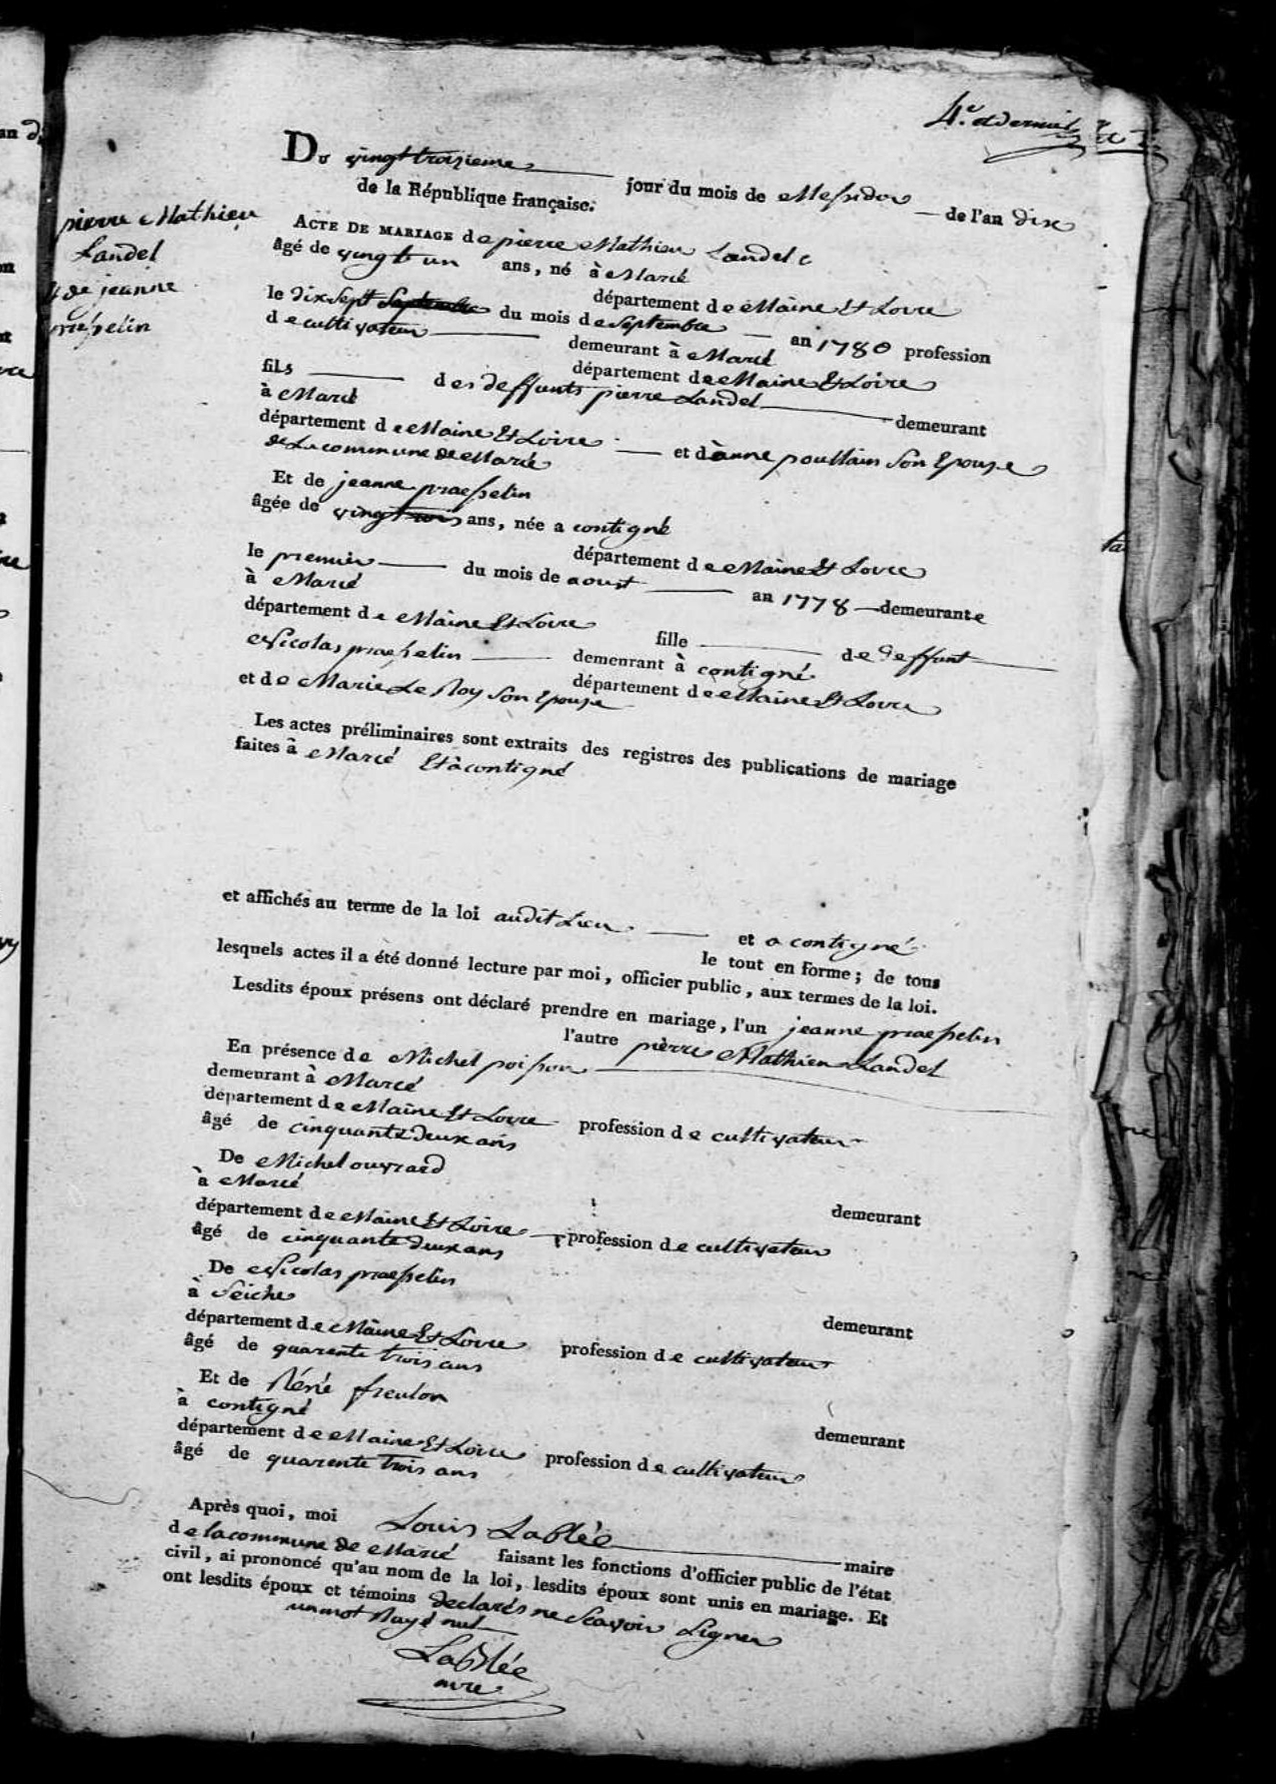 4.e et dernier
Du vingt troisieme jour du mois de Messidor de l'an dix
de la République française.
pierre Mathieu
Landel
& de jeanne
praesselin
ACTE DE MARIAGE de pierre Mathieu Landel
âgé de vingt un ans, né à Marcé
département de Maine Et Loire
le dix Sept Septembre du mois de Septembre an 1780 profession
de cultivateur demeurant à Marcé
département de Maine Et Loire
fils des deffunts pierre Landel demeurant
à Marcé
département de Maine Et Loire et d'anne poullain Son Epouse
de La commune de Marcé
Et de jeanne praesselin
âgée de vingt trois ans, née a contigné
département de Maine Et Loire
le premier du mois de aoust an 1778 demeurante
à Marcé
département de Maine Et Loire
fille de deffunt
Nicolas praesselin demeurant à contigné
département de Maine Et Loire
et de Marie Le Roy Son Epouse
Les actes préliminaires sont extraits des registres des publications de mariage
faites à Marcé Et à contigné
et affichés au terme de la loi audit Lieu et a contigné
le tout en forme ; de tous
lesquels actes il a été donné lecture par moi, officier public, aux termes de la loi.
Lesdits époux présens ont déclaré prendre en mariage, l'un jeanne praesselin
l'autre pierre Mathieu Landel
En présence de Michel poisson
demeurant à Marcé
département de Maine Et Loire profession de cultivateur
âgé de cinquante deux ans
De Michel ouvrard
demeurant
à Marcé
département de Maine Et Loire profession de cultivateur
âgé de cinquante deux ans
De Nicolas praesselin
demeurant
à Seiche
département de Maine Et Loire profession de cultivateur
âgé de quarente trois ans
Et de Réné freulon
demeurant
à contigné
département de Maine Et Loire profession de cultivateur
âgé de quarente trois ans
Après quoi, moi Louis Lablée maire
de la commune de Marcé faisant les fonctions d'officier public de l'état
civil, ai prononcé qu'au nom de la loi, lesdits époux sont unis en mariage. Et
ont lesdits époux et témoins declarés ne Scavoir Signer
un mot Rayé nul
Lablée